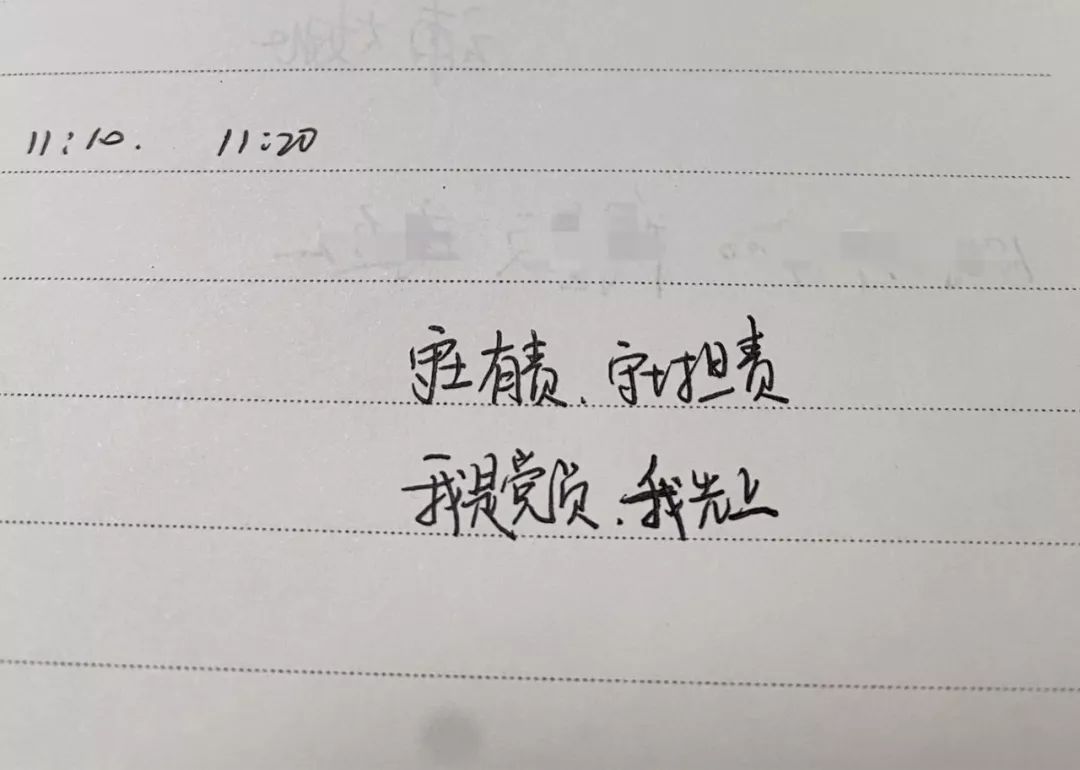 11:10. 11:20
守土有责、守土担责
我是党员、我先上